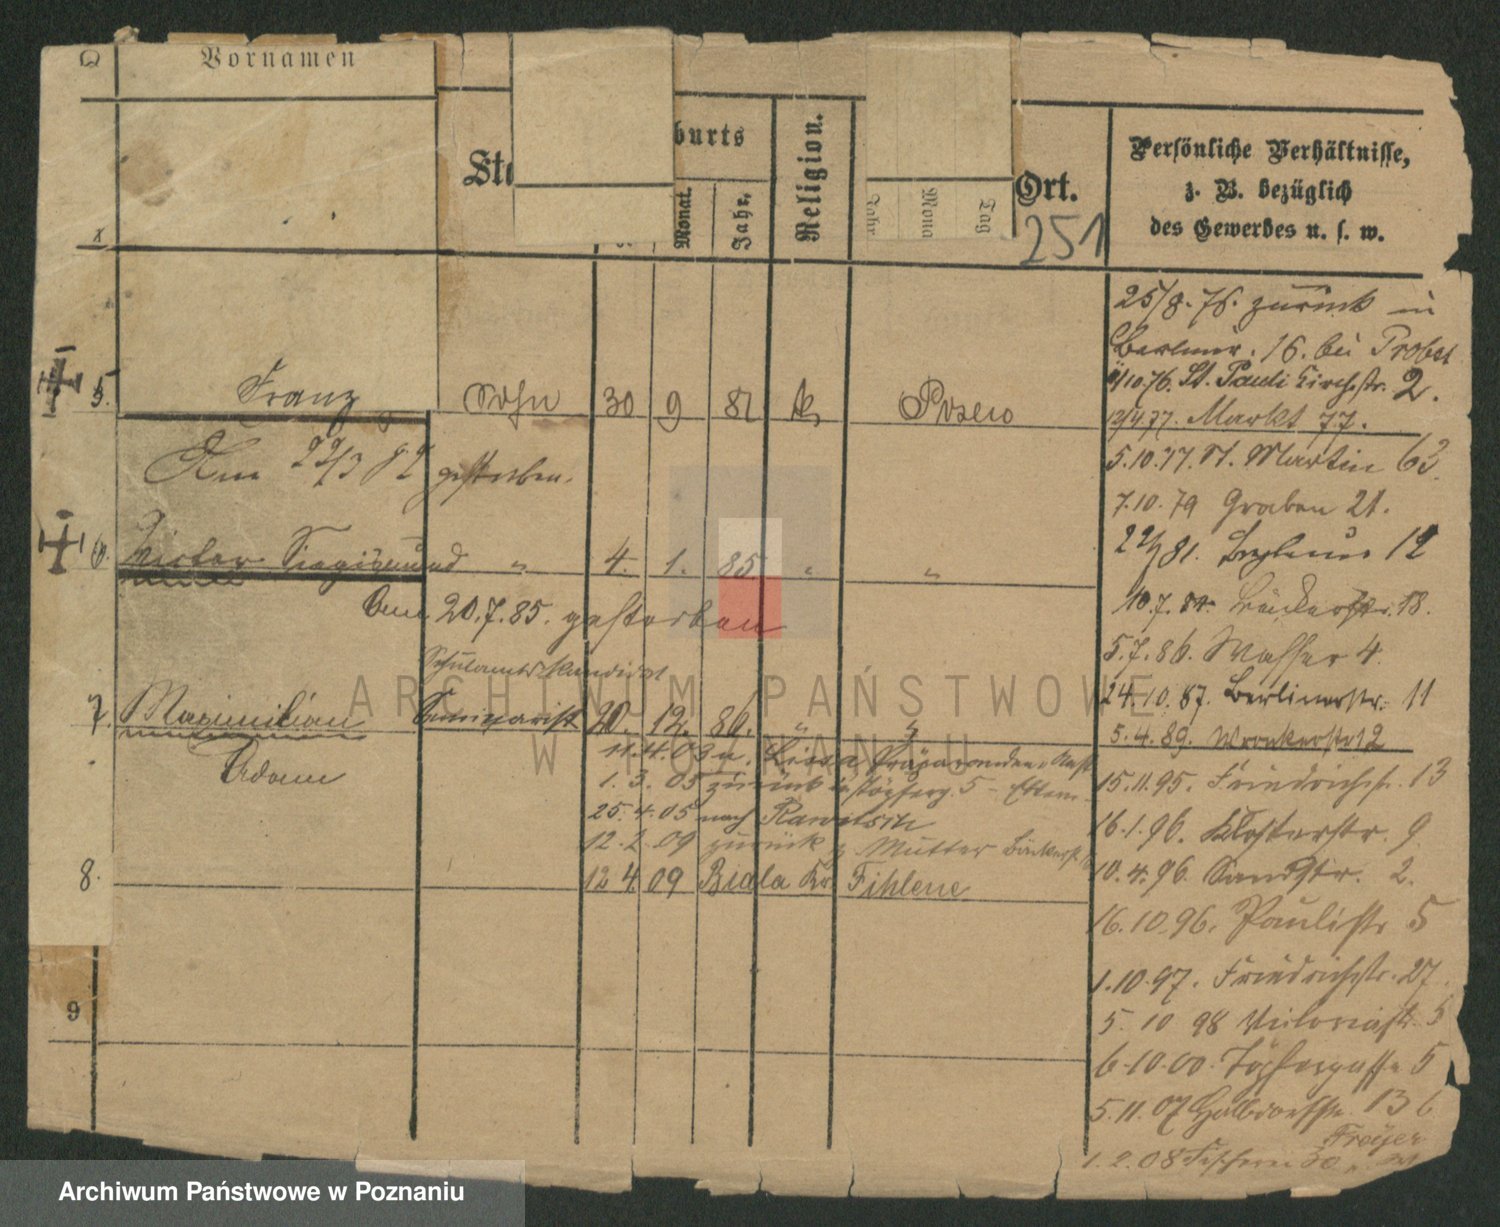 Vornamen
burts
Religion.
Monat.
Jahr.
Tag
Mona
Jahr
Ort.
251
Persönliche Verhältnisse,
z. B. bezüglich
des Gewerbes u. s. w.
5. Franz Sohn 30 9 81 k Posen
Am 22/3 82 gestorben.
6. Victor Siegismund " 4. 1. 85 " "
Am 20.7.85. gestorben
Schulamtskandidat
7. Maximilian Seminarist 20. 12. 86. " "
Adam
11.4.03 n. Lissa Präparanden Anst
1. 3. 05 zurück Töpferg. 5 Eltern
25.4.05 nach Rawitsch
12.2.09 zurück z. Mutter
12 4 09 Biala Kr. Filehne
8.
9
25/8.76. zurück in
Berliner. 16. bei Probst
/10.76. St. Pauli Kirchstr. 2.
12/4.77. Markt 77.
5.10.77. St. Martin 63.
7.10.79 Graben 21.
22/ 81. 12
10.7.84. Bäckerstr. 18.
5.7.86. Wasser 4.
24.10.87. Berlinerstr. 11
5.4.89. Wronkerstr 2
15.11.95. Friedrichstr. 13
16.1.96. Klosterstr. 9.
10.4.96. Sandstr. 2.
16.10.96. Paulistr 5
1.10.97. Friedrichstr. 27.
5. 10 98 Victoriastr. 5
6.10.00. Töpfergasse 5
5.11.07 Halbdorfstr. 13
1.2.08 Fischerei 30